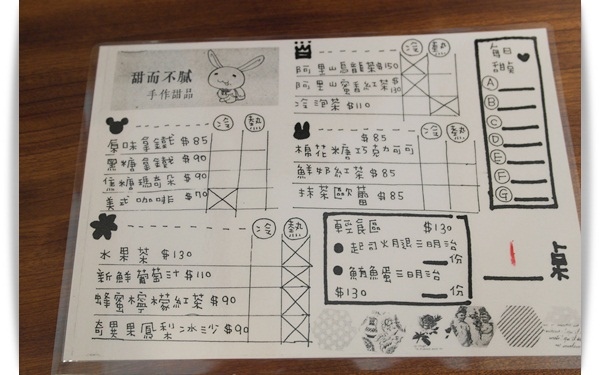 甜而不膩
手作甜品
冷 熱
原味拿鐵 $85
黑糖拿鐵 $90
焦糖瑪奇朵 $90
美式咖啡 $70
冷 熱
水果茶 $130
新鮮葡萄汁 $110
蜂蜜檸檬紅茶 $90
奇異果鳳梨冰沙 $90
冷 熱
阿里山烏龍茶 $150
阿里山蜜香紅茶 $130
冷泡茶 $110
冷 熱
$85
棉花糖巧克力可可
鮮奶紅茶 $85
抹茶歐蕾 $85
輕食區 $130
起司火腿三明治
份
鮪魚蛋三明治
$130 份
每日
甜點
A
B
C
D
E
F
G
1